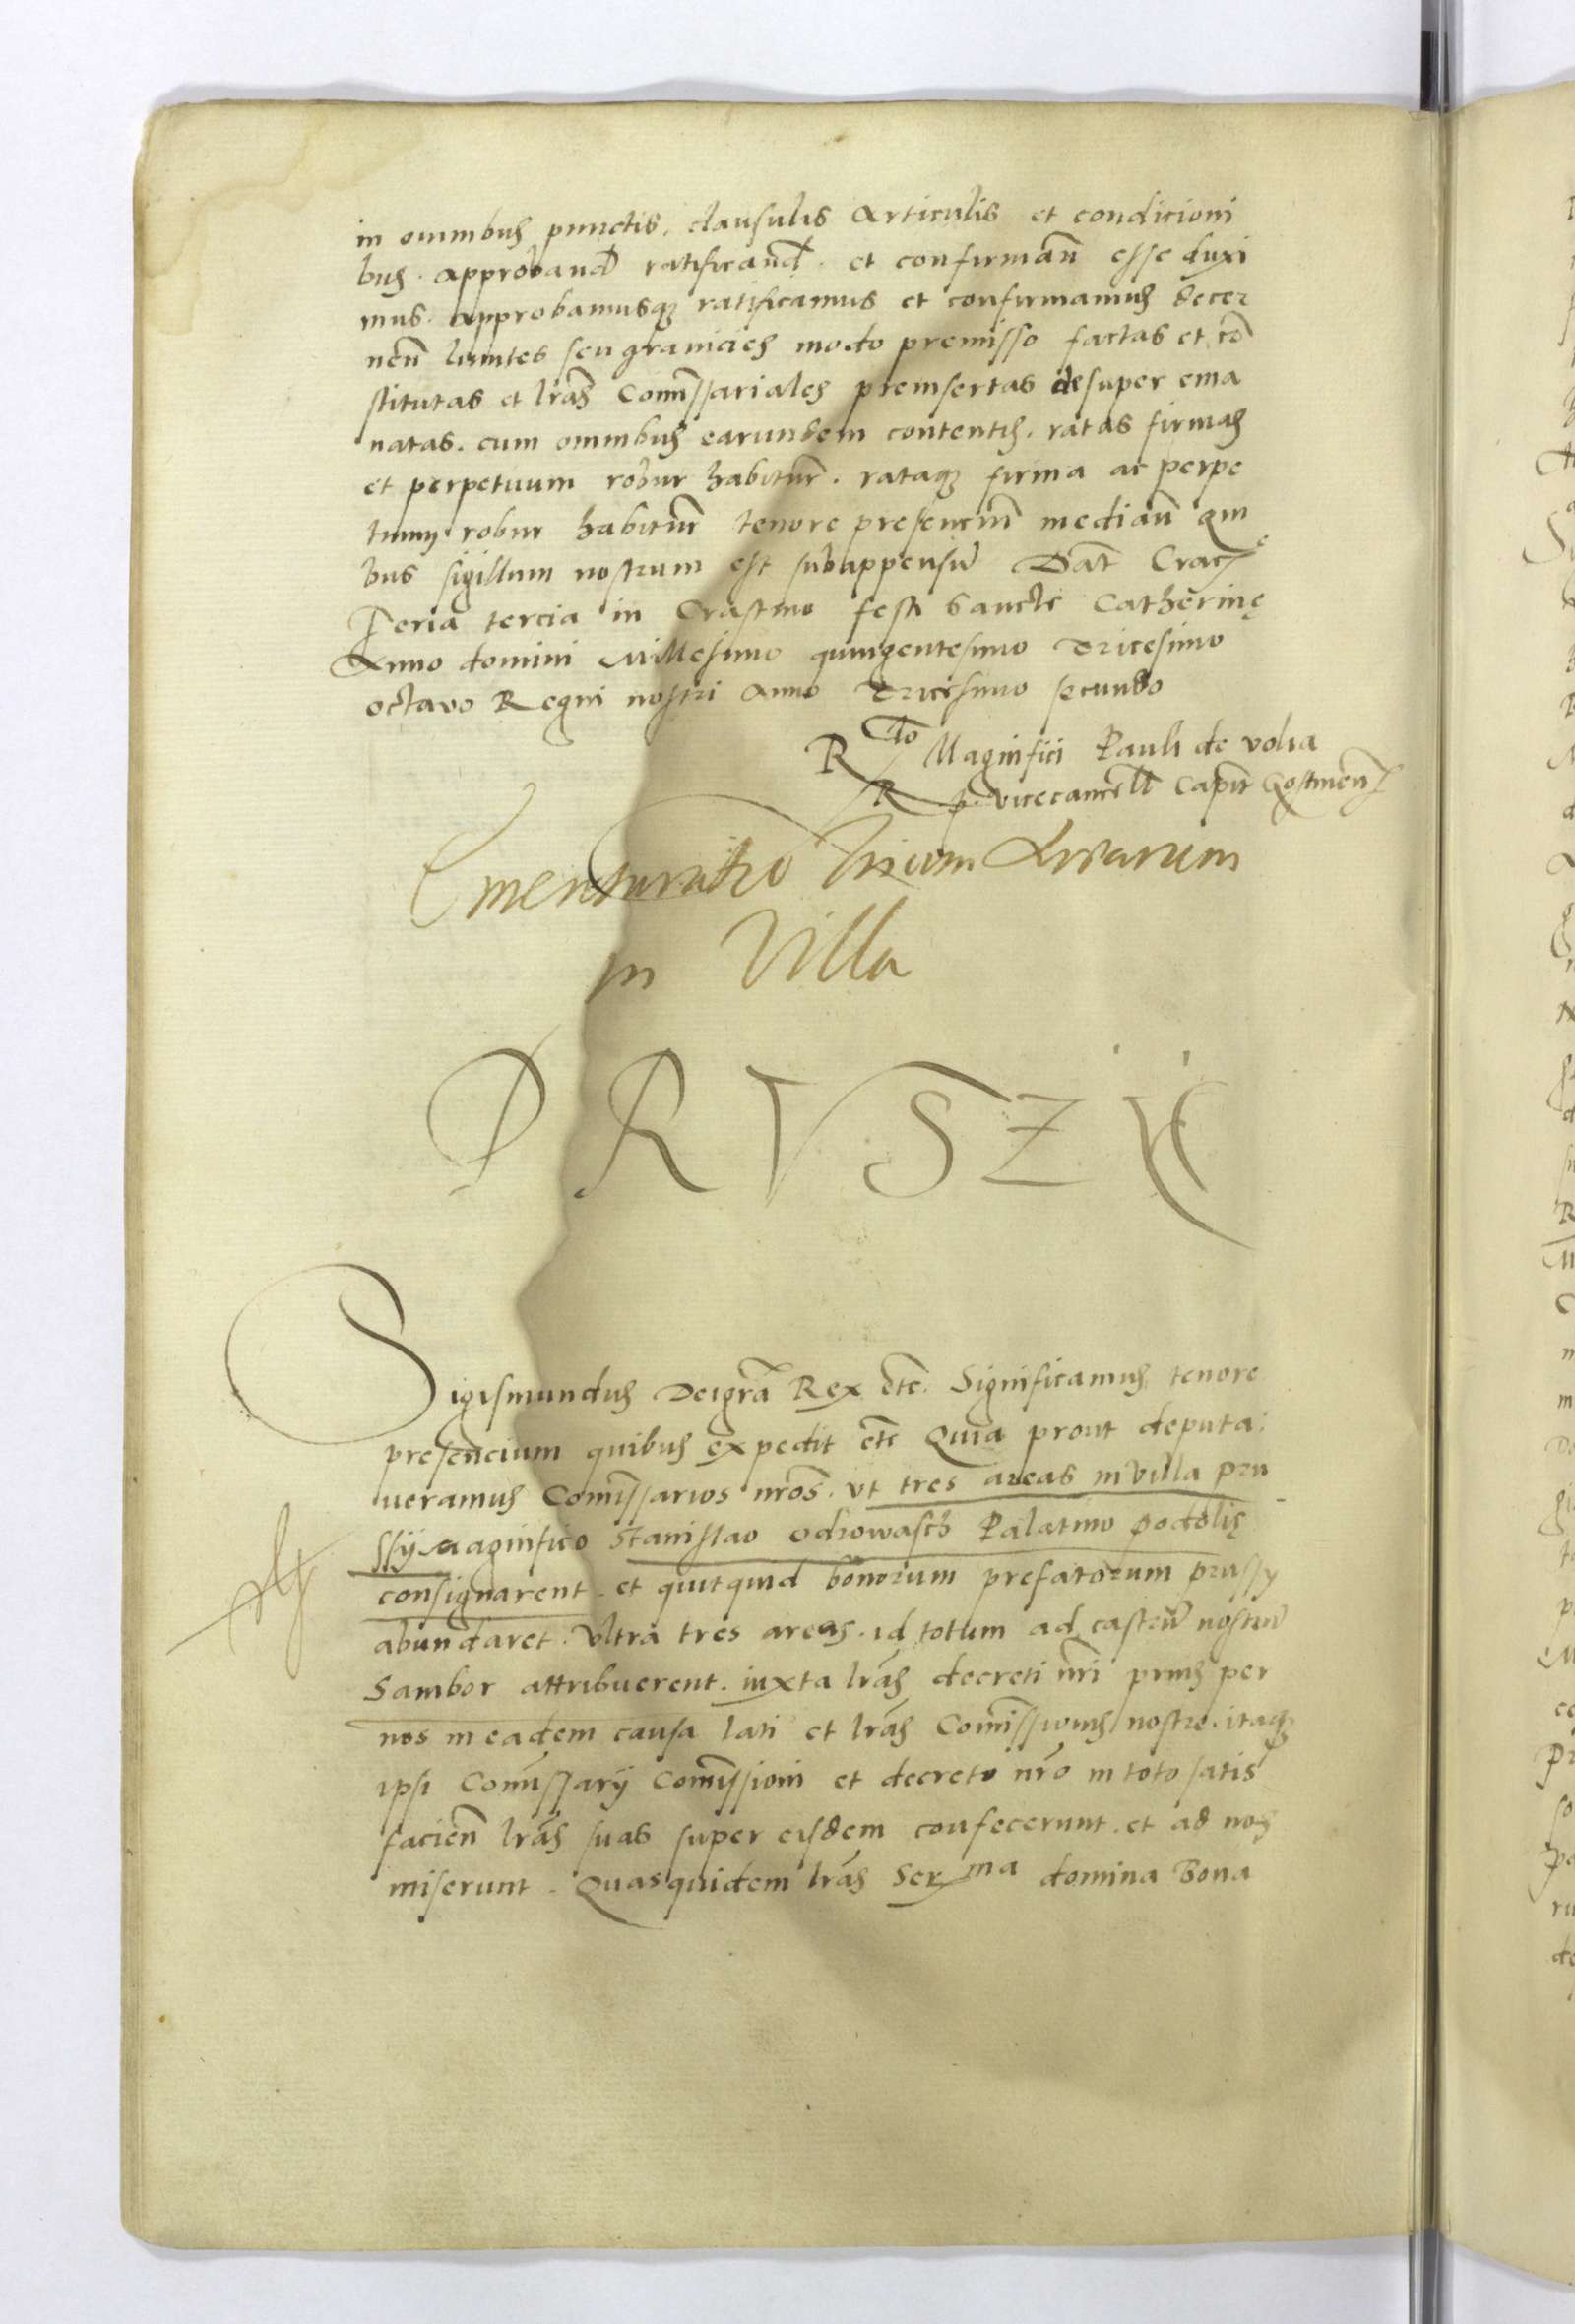 in omnibus punctis. clausulis Articulis et condicioni
bus. approband ratificand. et confirman esse duxi
mus. approbamusq ratificamus et confirmamus decer
nen limites seu granicies modo premisso factas et co
stitutas et lras Comissariales preinsertas desuper ema
natas. cum omnibus earundem contentis. ratas firmas
et perpetuum robur habitur. rataq firma ac perpe
tuum robur habitur tenore presencium median qui
bus sigillum nostrum est subappensu Dat Crac
Feria tercia in Crastino festi Sancte Catherinę
Anno domini Millesimo quingentesimo Tricesimo
octavo Regni nostri Anno Tricesimo secundo
R to Magnifici Pauli de volia
R p. vicecancell Capit Gostinen
Ementuratio Trium Arearum
in Villa
PRVSZY
Sigismundus Dei gra Rex etc. Significamus tenore
presencium quibus expedit etc Quia prout deputa
ueramus Comissarios nros. vt tres areas in villa pru
ssy Magnifico Stanislao Odrowasch Palatino podolię
consignarent. et quitquid bonorum prefatorum prussy
abundaret. vltra tres areas. id totum ad castru nostru
Sambor attribuerent. iuxta lras decreti nri prius per
nos in eadem causa lati et lras Comissionis nostre. itaq
ipsi Comissarij Comissioni et decreto nro in toto satis
facien lras suas super eisdem confecerunt. et ad nos
miserunt. Quasquidem lras Ser ma domina Bona